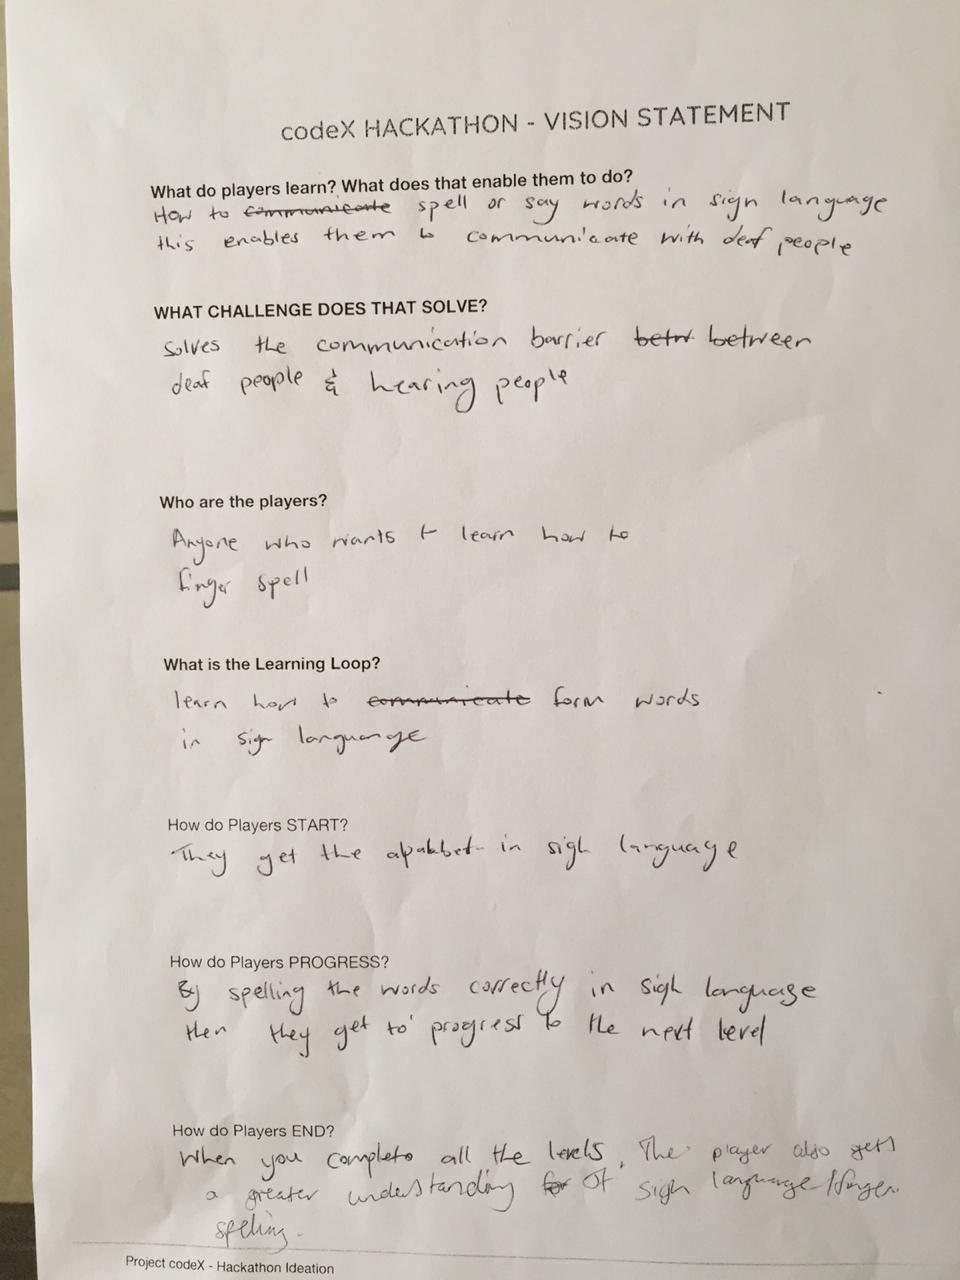 codeX HACKATHON - VISION STATEMENT
What do players learn? What does that enable them to do?
How to communicate spell or say words in sign language
this enables them to communicate with deaf people
WHAT CHALLENGE DOES THAT SOLVE?
Solves the communication barrier betw between
deaf people & hearing people
Who are the players?
Anyone who wants to learn how to
finger spell
What is the Learning Loop?
learn how to communicate form words
in sign languange
How do Players START?
They get the alpabbet in sigh language
How do Players PROGRESS?
By spelling the words correctly in sigh language
then they get to progress to the next level
How do Players END?
When you complete all the levels. The player also gets
a greater understanding for of sigh language/finger
spelling.
Project codeX - Hackathon Ideation